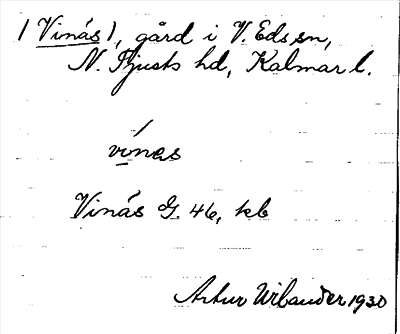 / Vinås /, gård i V. Eds sn,
N. Tjusts hd, Kalmar l.
vínas
Vinås G. 46, kb
Artur Urbander 1930